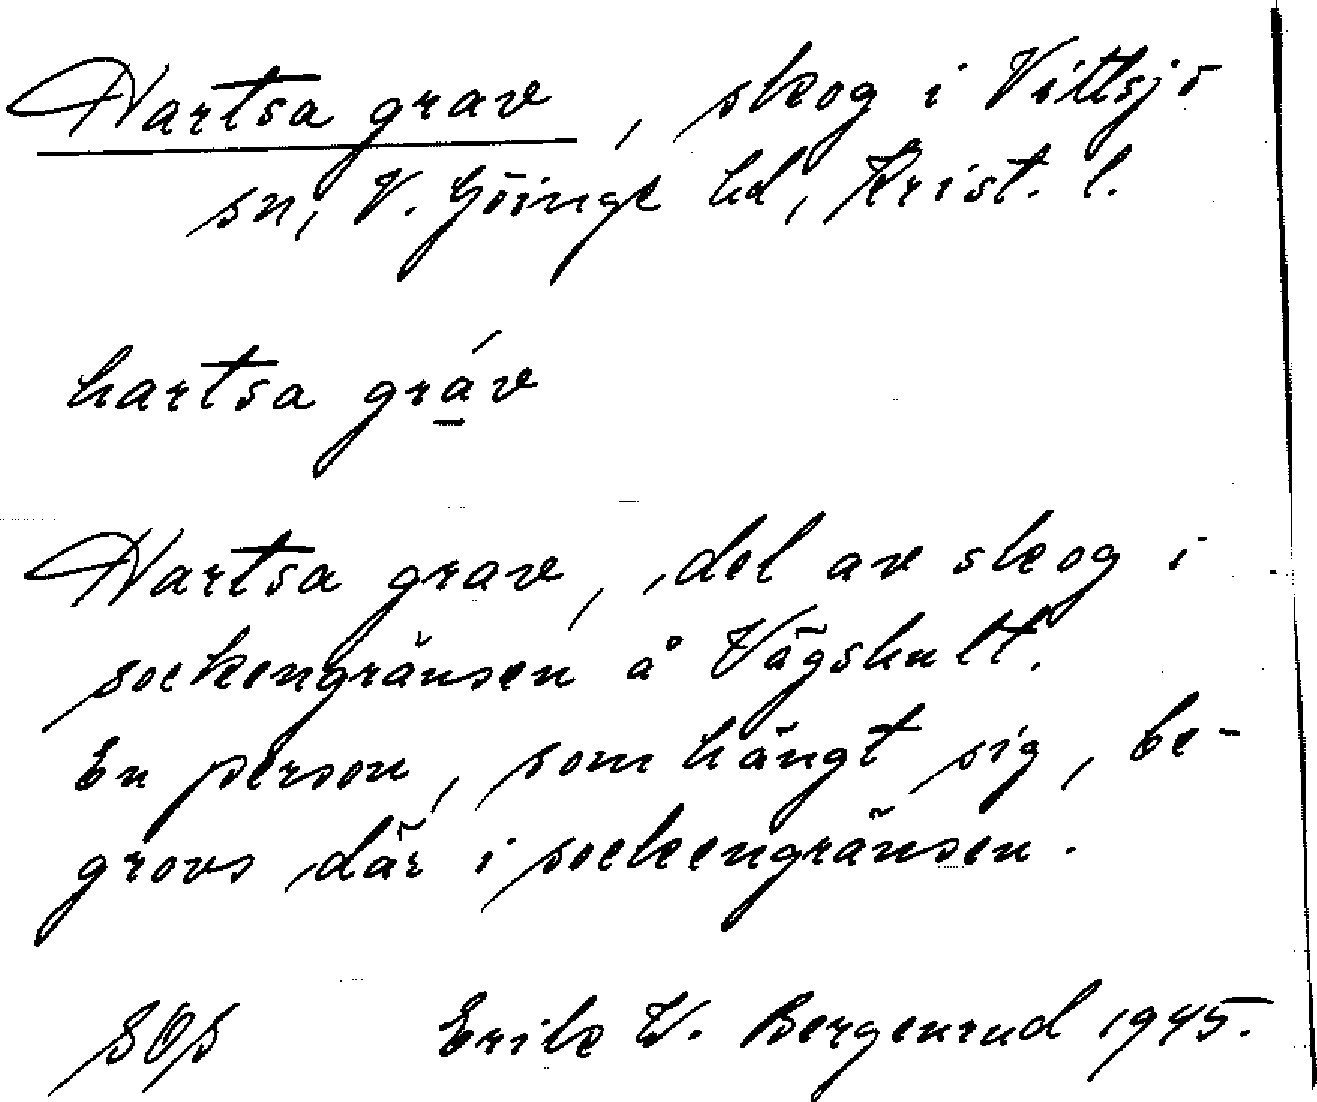 Hartsa grav, skog i Vittsjö
sn, V. Göinge hd, Krist. l.
hartsa grá̱v
Hartsa grav, del av skog i
sockengränsen å Vägshult.
En person, som hängt sig, be-
grovs där i sockengränsen.
SOS Erik W. Bergenrud 1945.